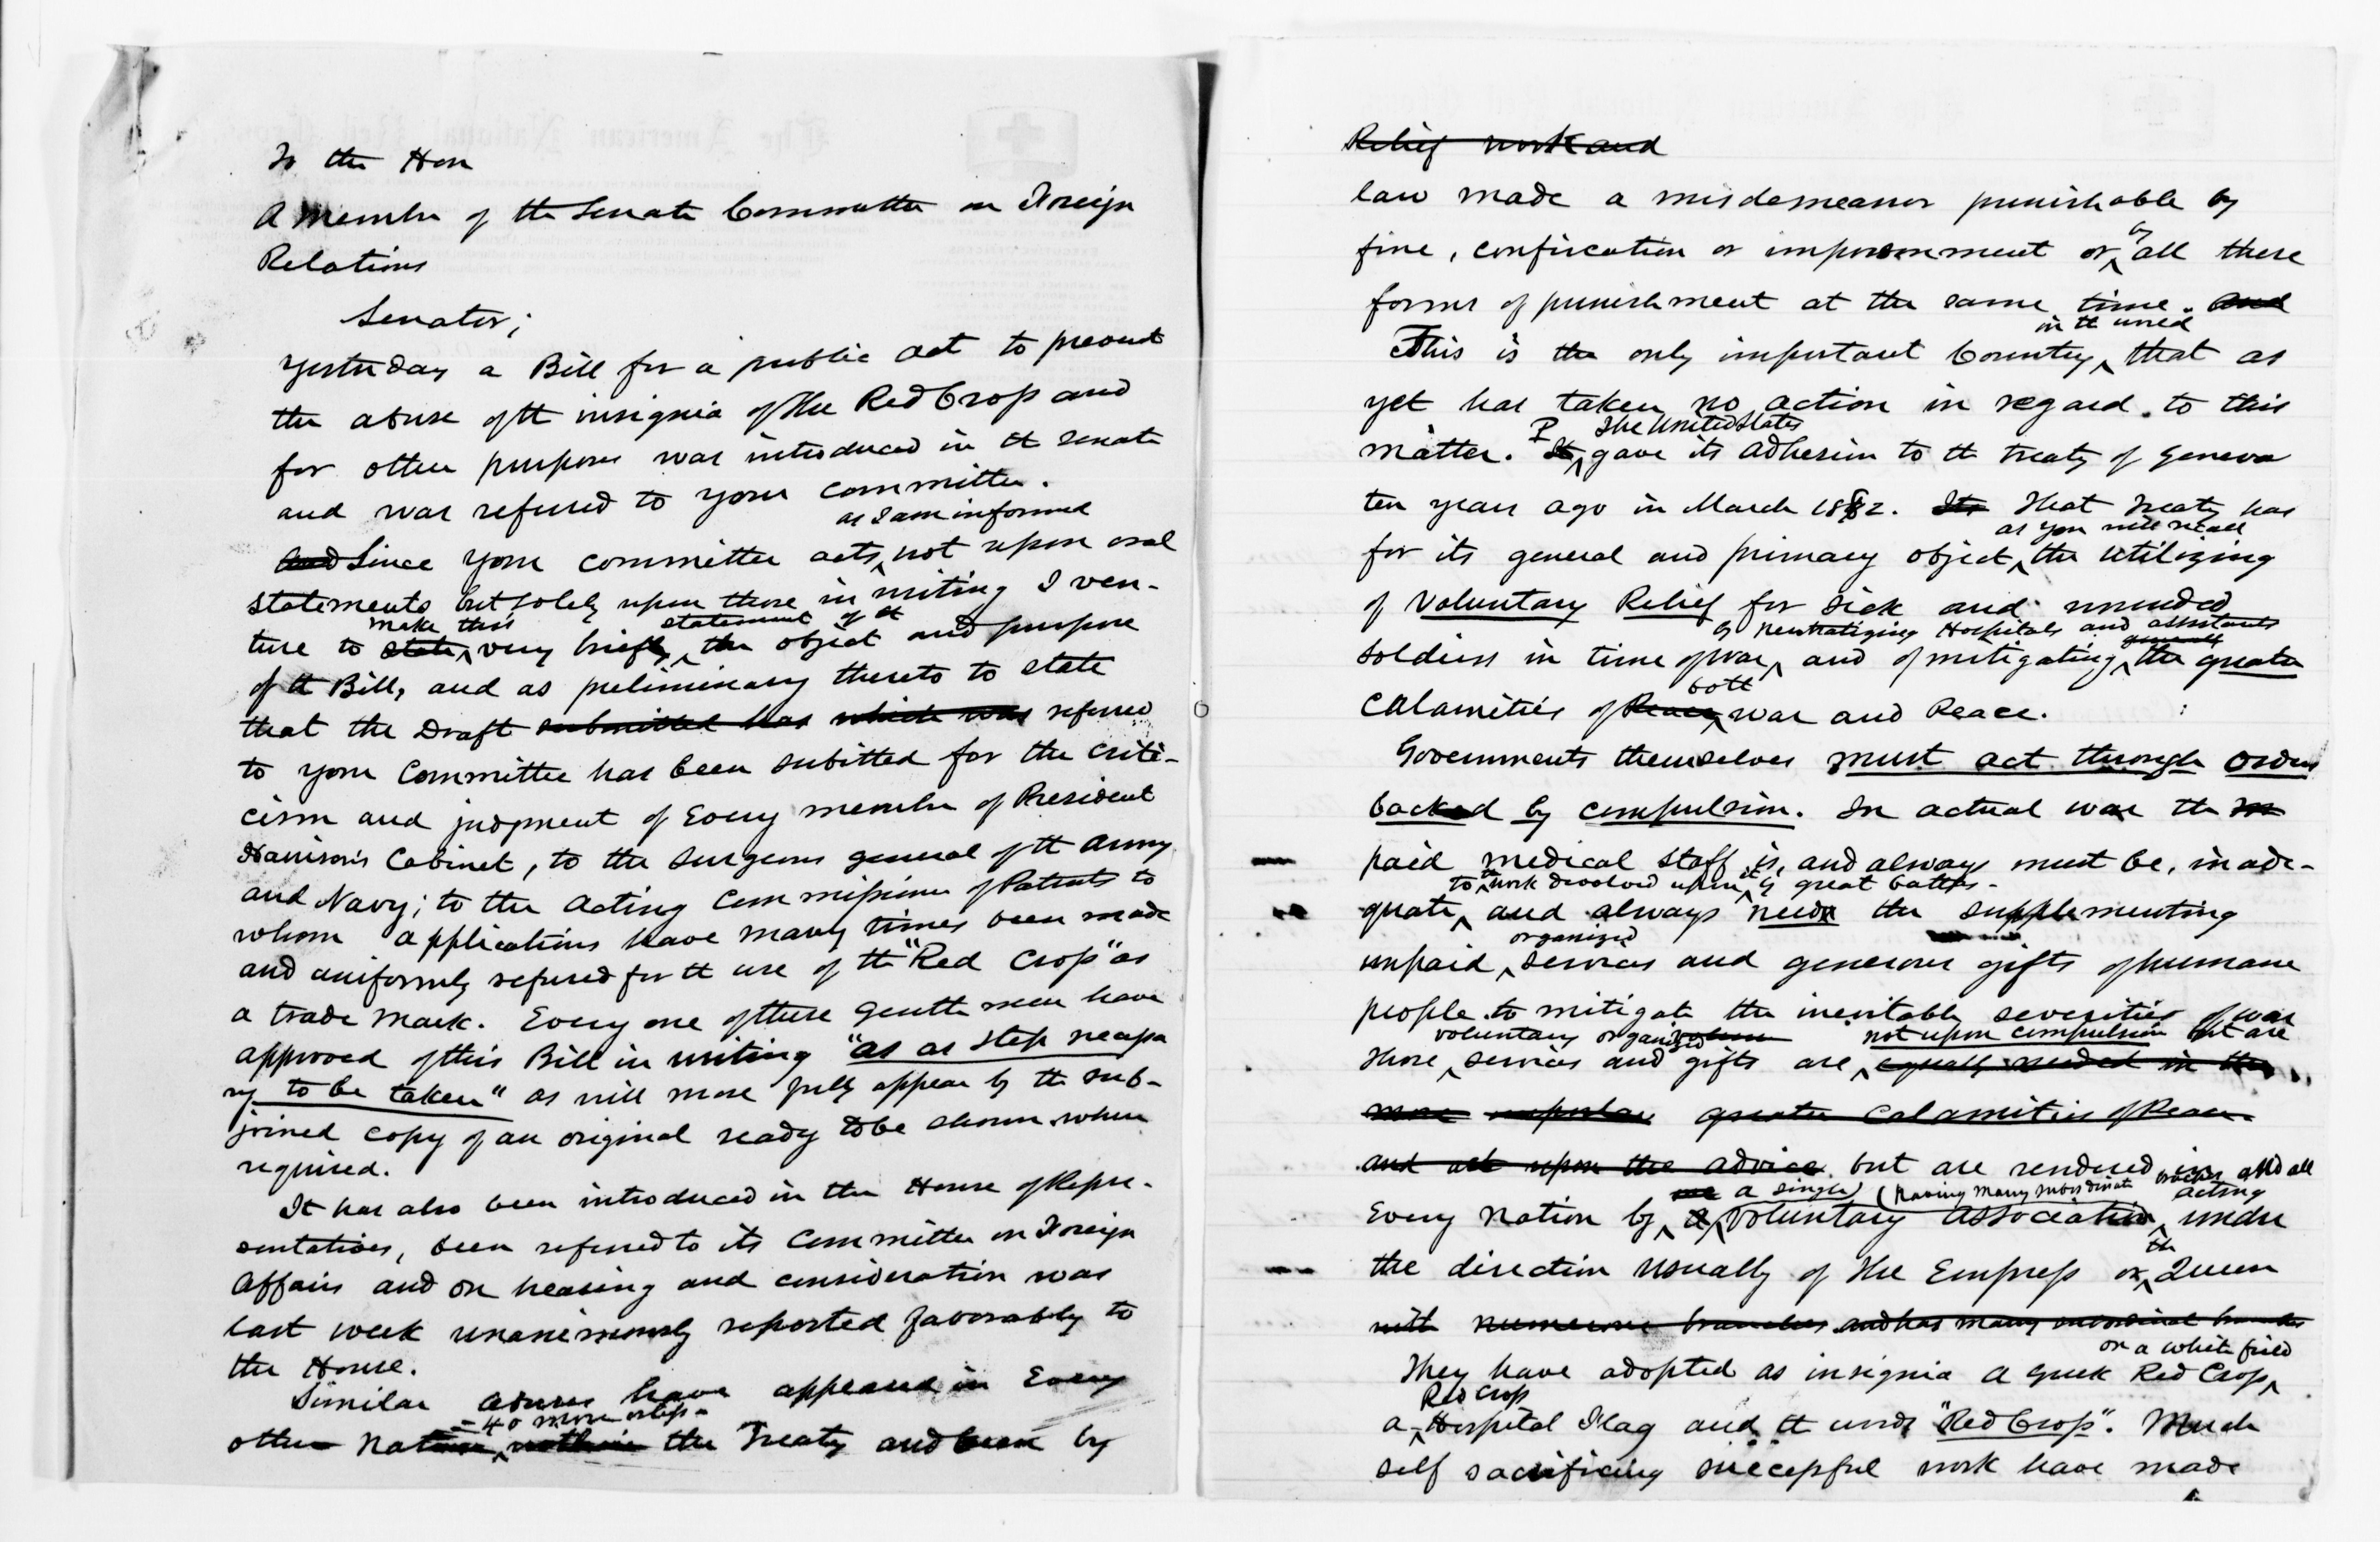 To the Hon
A Member of the Senate Committee on Foreign
Relations
Senator;
Yesterday a Bill for a public act to prevent
the abuse of the insignia of the Red Cross and
for other purposes was introduced in the Senate
and was referred to your committee.
as I am informed
And Since your committee acts not upon oral
statements but solely upon those in writing I ven-
make this statement of the
ture to state very briefly the object and purpose
of the Bill, and as preliminary thereto to state
that the Draft submitted has which was referred
to your Committee has been subitted for the criti-
cism and judgment of Every member of President
Harrison's Cabinet, to the Surgeons general of the Army
and Navy; to the Acting Commissioner of Patents to
whom applications have many times been made
and uniformly refused for the use of the "Red Cross" as
a trade mark. Every one of these Gentlemen have
approved of this Bill in writing "as a step necessa
ry to be taken" as will more fully appear by the sub-
joined copy of an original ready to be shown when
required.
It has also been introduced in the House of Repre-
sentatives, been referred to its Committee on Foreign
Affairs and on hearing and consideration was
last week unanimously reported favorably to
the House.
Similar abuses have appeared in Every
-40 more
other the Treaty and been by
Relief work and
law made a misdemeanor punishable by
by
fine, confiscation or imprisonment or all these
forms of punishment at the same time. and
in the world
This is the only important Country that as
yet has taken no action in regard to this
The United States
matter. It gave its adhesion to the treaty of Geneva
ten years ago in March 1882. Its That Treaty has
as you will recall
for its general and primary object the utilizing
of Voluntary Relief for sick and wounded
by neutralizing Hospitals and assistants
generally
soldiers in time of war, and of mitigating the greater
both
Calamities of Peace war and Peace.
Governments themselves must act through Orders
backed by compulsion. In actual war the
paid medical staff is, and always must be, inade-
to the work devolved upon it by great battles-
quate, and always needs the supplementing
organized
unpaid services and generous gifts of humane
people to mitigate the inevitable severities of war
voluntary organized not upon compulsion but are
Those services and gifts are equally needed in the
more greater Calamities of Peace
and act upon the advice but are rendered in and all
a single (having many subordinate acting
Every Nation by a voluntary association under
the
the direction usually of the Empress or Queen
with numerous branches and has many
on a white field
They have adopted as insignia a Greek Red Cross
Red Cross
a Hospital Flag and the words "Red Cross". Much
self sacrificing successful work have made